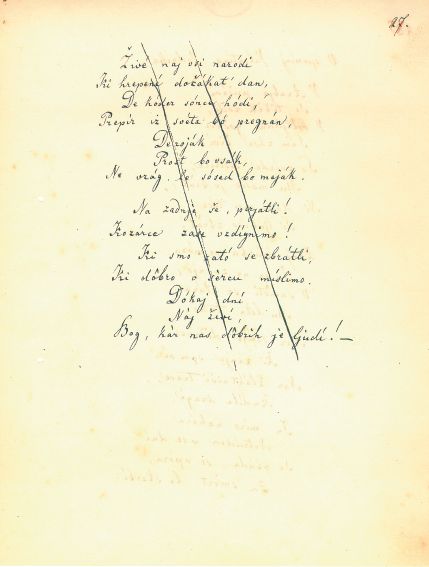 27.
Živé naj vsi naródi
Ki hrepené dočákat' dan,
De kóder sónce hódi,
Prepír iz svéta bó pregnán,
De roják
Prost bo vsák,
Ne vrág, le sósed bo meják.
Na zadnje še, prijátli!
Kozárce zase vzdígnimo!
Ki smo zató se zbrátli,
Ki dôbro v sércu míslimo.
Dókaj dní
Naj živí,
Bog, kar nas dôbrih je ljudí! —